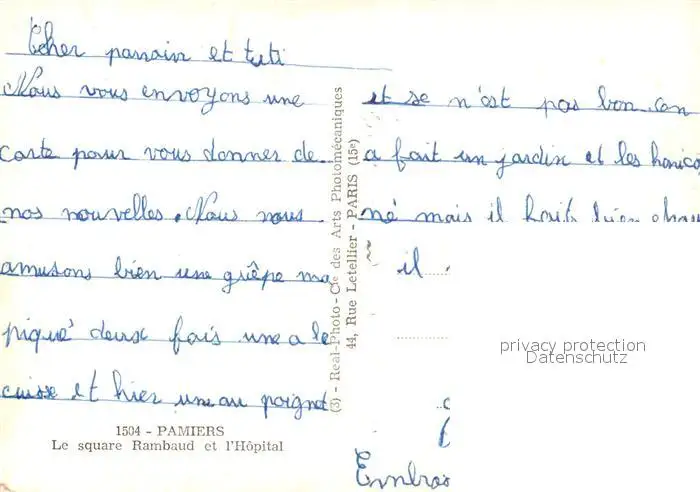 Cher parrain et tati
Nous vous envoyons une
carte pour vous donner de
nos nouvelles. Nous nous
amusons bien une guêpe ma
piqué deux fois une a la
cuisse et hier une au poignet
1504 - PAMIERS
Le square Rambaud et l'Hôpital
(3) - Real-Photo - Cie des Arts Photomécaniques
44, Rue Letellier - PARIS (15e)
et se n'est pas bon con
a fait un jardin et les harico
né mais il fait bien chau
il
privacy protection
Datenschutz
Embras